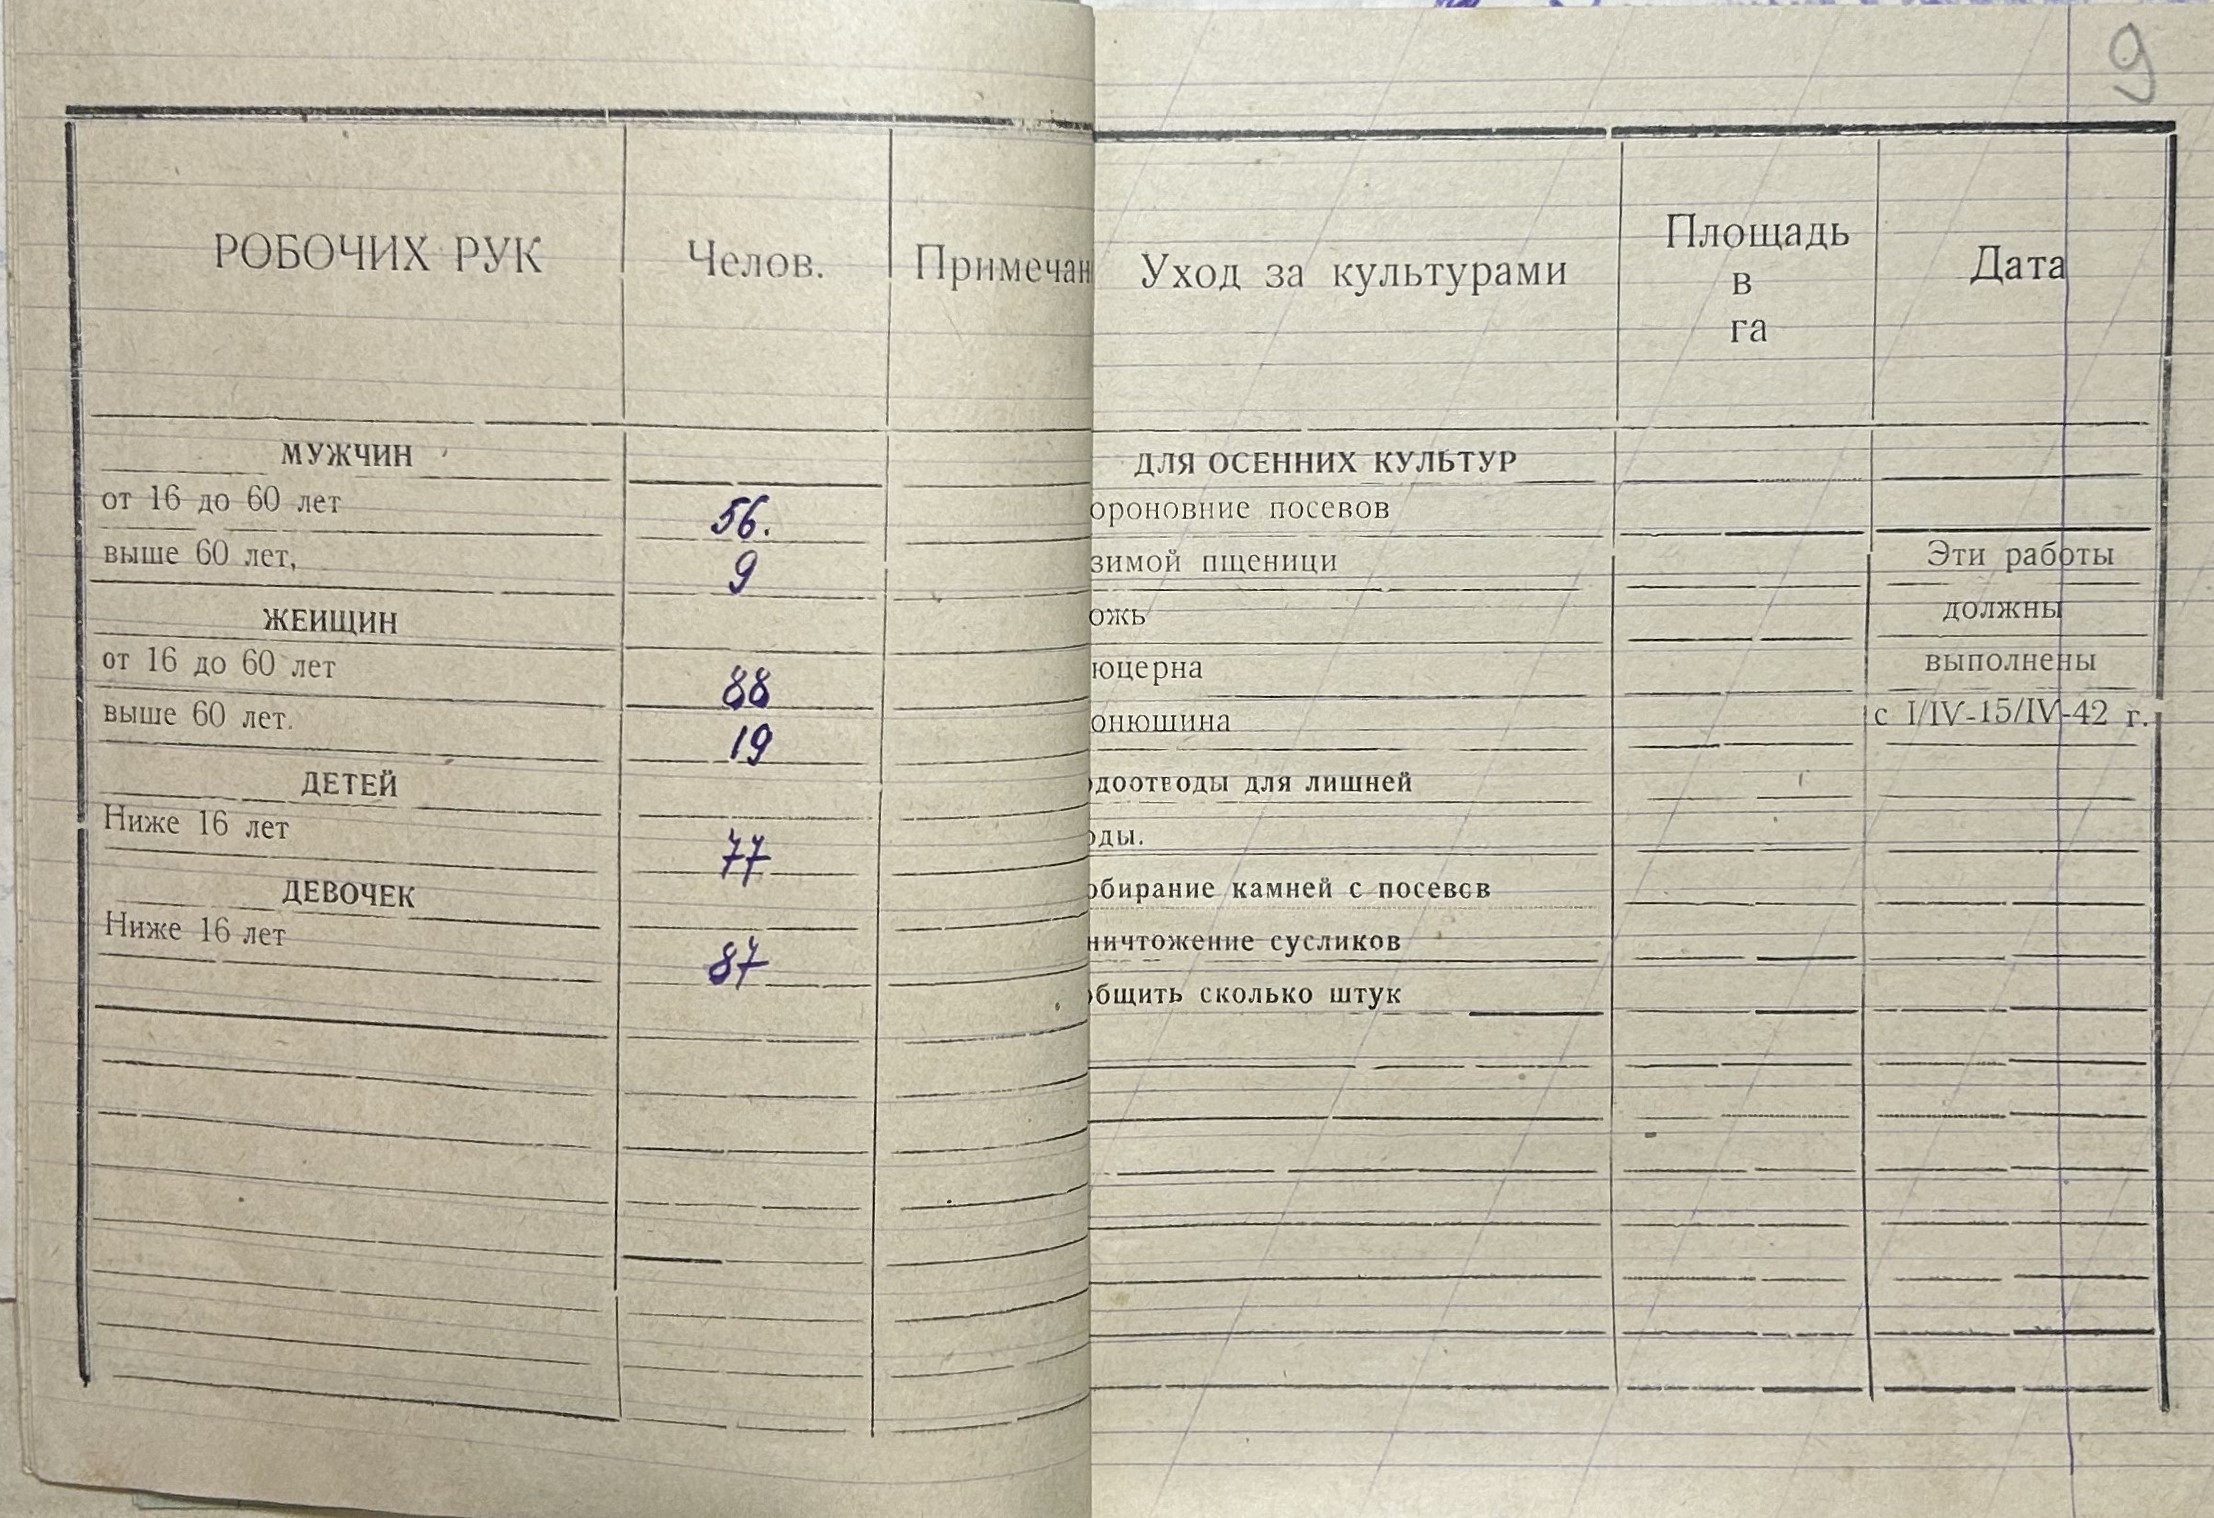 9
РОБОЧИХ РУК Челов. Примечан
МУЖЧИН
от 16 до 60 лет 56.
выше 60 лет, 9
ЖЕИЩИН
от 16 до 60 лет 88
выше 60 лет. 19
ДЕТЕЙ
Ниже 16 лет 77
ДЕВОЧЕК
Ниже 16 лет 87
Уход за культурами Площадь в га Дата
ДЛЯ ОСЕННИХ КУЛЬТУР
ороновние посевов
зимой пщеници Эти работы
ожь должны
юцерна выполнены
онюшина с I/IV-15/IV-42 г.
доотводы для лишней
оды.
обирание камней с посевов
ничтожение сусликов
общить сколько штук